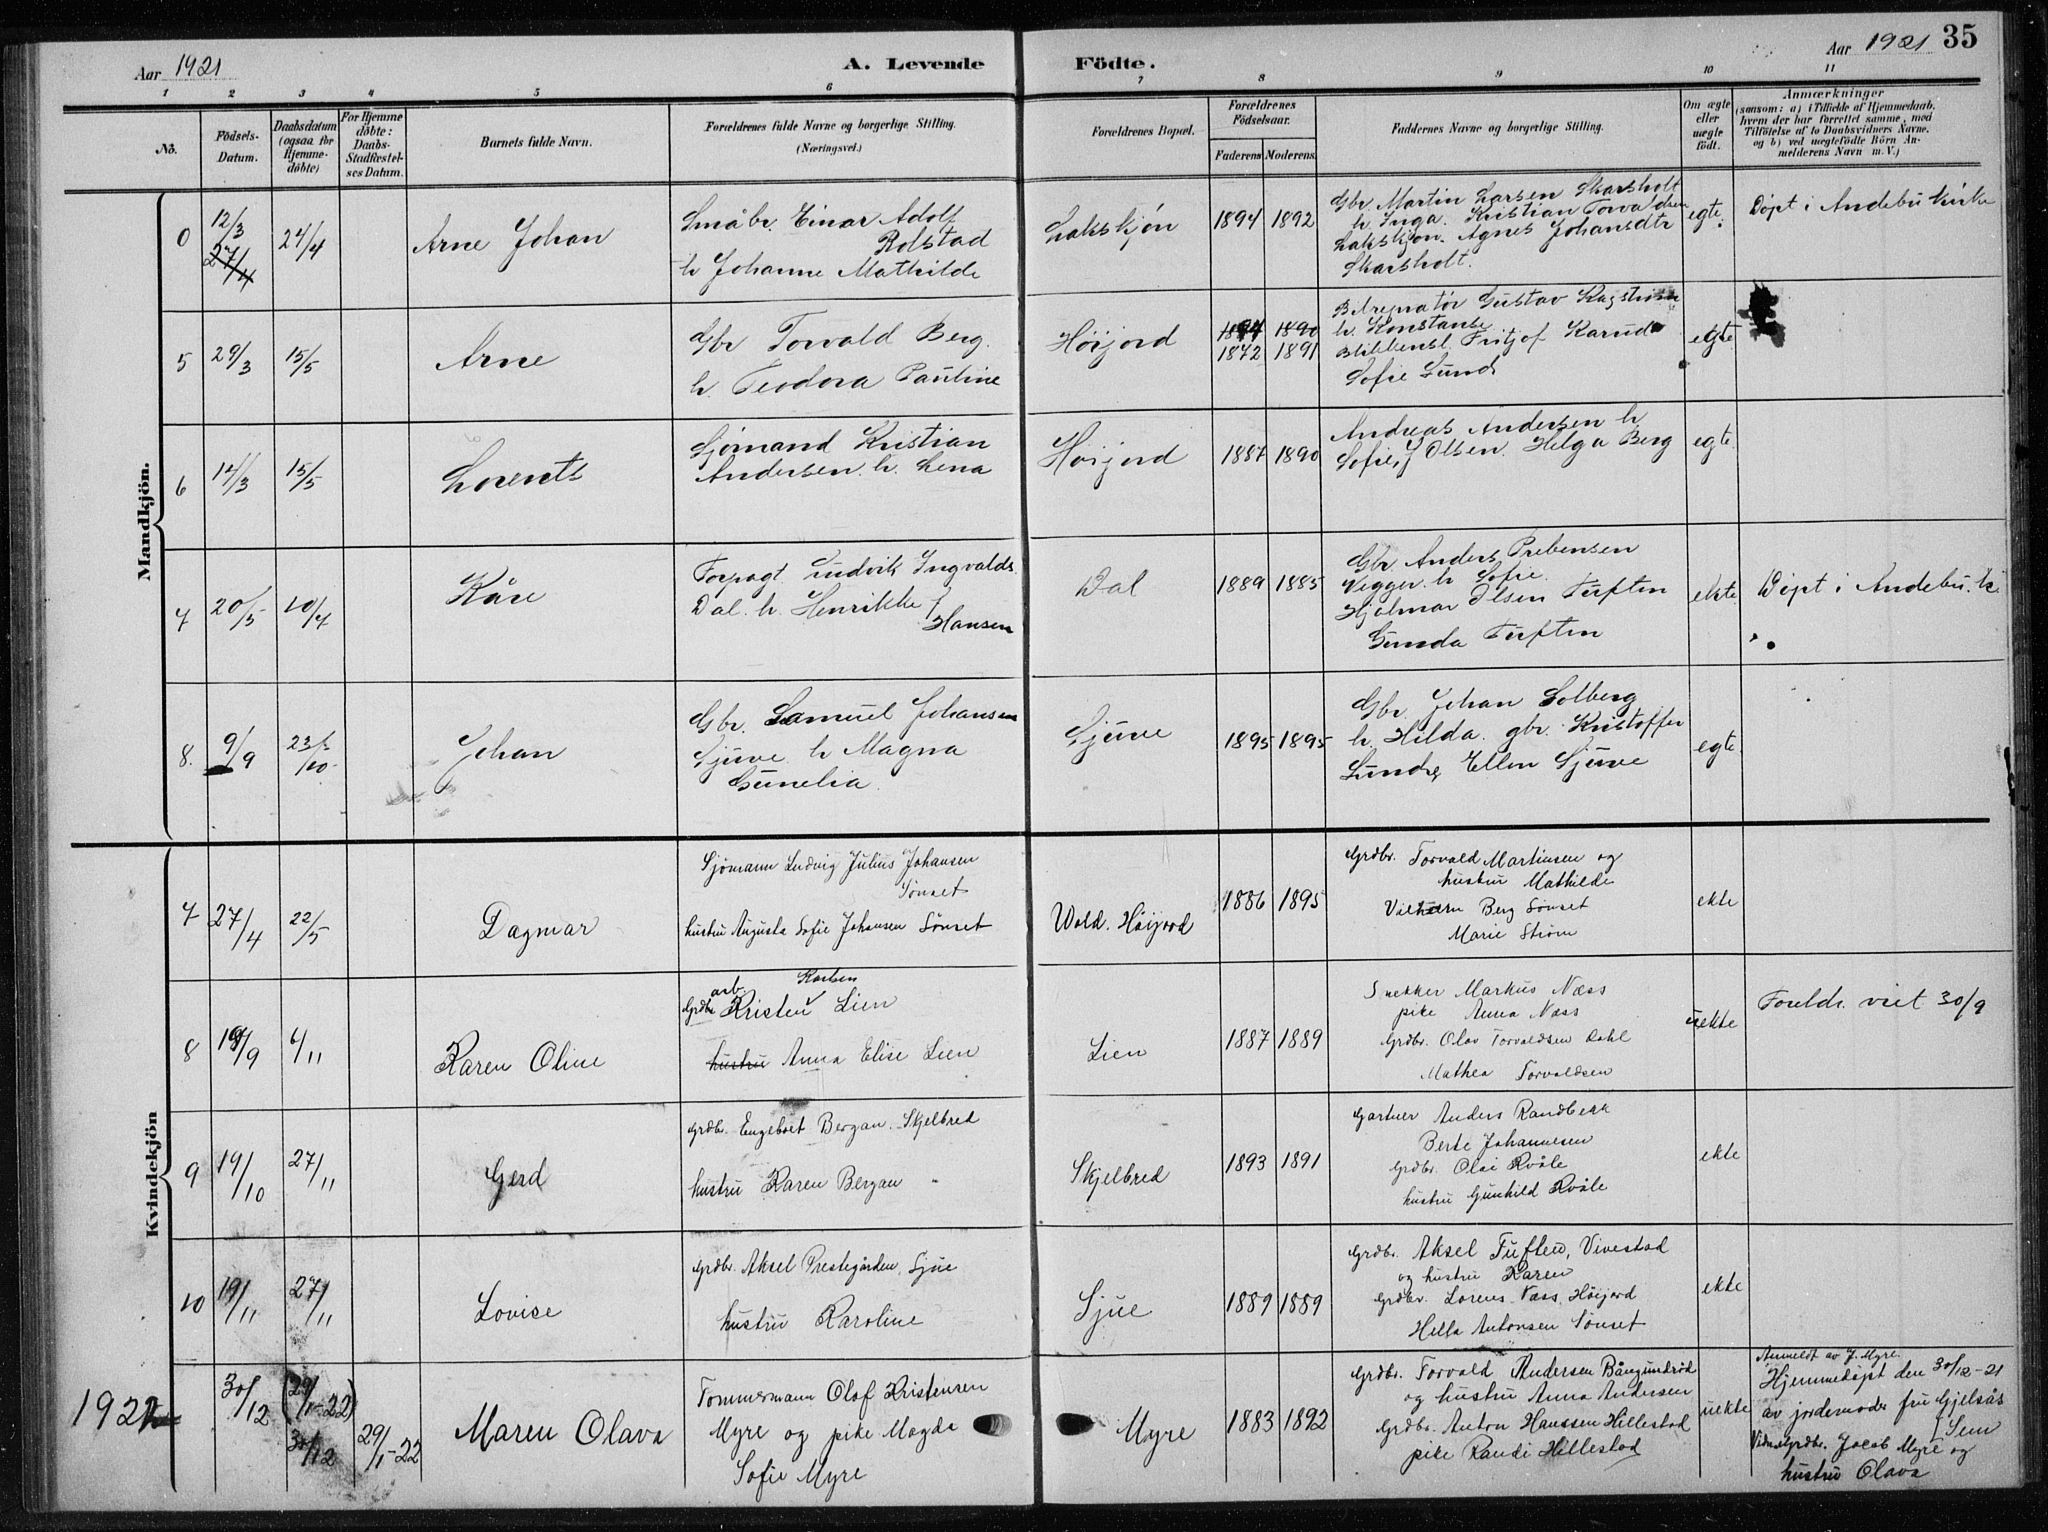 Aar 1921
A. Levende Födte.
Aar 1921 35
1 2 3 4 5 6 7 8 9 10 11
No.
Födsels-Datum.
Daabsdatum (ogsaa for Hjemme-döbte)
For Hjemme döbte: Daabs-Stadfæstel-ses Datum.
Barnets fulde Navn.
Forældrenes fulde Navne og borgerlige Stilling.
(Næringsvei.)
Forældrenes Bopæl.
Forældrenes Födselsaar.
Faderens Moderens
Faddernes Navne og borgerlige Stilling.
Om ægte eller uægte födt.
Anmærkninger
(saasom: a) i Tilfælde af Hjemmedaab,
hvem der har forrettet samme, med
Tilföielse af to Daabsvidners Navne.
og b) ved uægtefödte Börn An-
melderens Navn m. V.)
Mandkjön.
0 12/3 27/4 24/4
Arne Johan
Småbr. Einar Adolf
Rolstad
h Johanne Mathilde
Lakskjøn
1894 1892
Gbr Martin Larsen Skarsholt
h Inga. Kristian Torvaldsen
Lakskjøn. Agnes Johansdtr
Skarsholt.
egte.
Døpt i Andebu Kirke
5 29/3 15/5
Arne
Gbr Torvald Berg.
h. Teodora Pauline
Høijord
1890
1872 1891
Gustav
h. Konstanse
Blikkensl. Fritjof
Sofie Lund
egte.
6 14/3 15/5
Lorents
Sjømand Kristian
Andersen. h. Lena
Høijord
1887 1890
Andreas Andersen h.
Sofie, Olsen. Helga Berg
egte.
7 20/3 10/4
Kåre
Forpagt. Ludvik Ingvalds.
Dal. h. Henrikke
Hansen
Dal
1889 1885
Gbr. Anders Prebensen
Vegger h Sofie.
Hjalmar Olsen Tuften
Gunda Tuften
ekte.
Døpt i Andebu. K.
8. 9/9 23/10
Johan
Gbr. Samuel Johansen
Sjuve h Magna
Gunelia.
Sjuve
1895 1895
Gbr. Johan Solberg
h. Hilda. gbr. Kristoffer
Lunde, Ellen Sjuve
egte.
Kvindekjön
7 27/4 22/5
Dagmar
Sjømann Ludvig Julius Johansen
Sønset
hustru Augusta Sofie Johansen Sønset
Wold. Høijord
1886 1895
Grdbr. Torvald Martinsen og
hustru Mathilde
Vilhelm Berg Sønset
Marie Strøm
ekte
8 19/9 6/11
Karen Oline
arb. Karlsen
Grdbr Kristen Lien
hustru Anna Elise Lien
Lien
1887 1889
Snekker Markus Næss
pike Anna Næss
Grdbr. Olav Torvaldsen Dahl
Mathea Torvaldsen
uekte
Foreldr. viet 30/9
9 19/10 27/11
Gerd
Grdbr. Engebret Bergan. Skjelbred
hustru Karen Bergan "
Skjelbred
1893 1891
Gartner Anders Randbekk
Berte Johannesen
Grdbr. Olai Kvåle
hustru Gunhild Kvåle
ekte
10 19/11 27/11
Lovise
Grdbr. Aksel Prestegården, Sjue
hustru Karoline
Sjue
1889 1889
Grdbr. Aksel Tuften, Vivestad
og hustru Karen
Grdbr. Lorens Næss, Høijord
Hella Antonsen Sønset
ekte
1922 30/12 (29/1-22) 30/12 29/1-22
Maren Olava
Tømmermann Olaf Kristensen
Myre og pike Magda
Sofie Myre
Myre
1883 1892
Grdbr. Torvald Andersen Bångundrød
og hustru Anna Andersen
Grdbr. Anton Hanssen Hillestad
pike Randi Hillestad
uekte
Anmeldt av J. Myre.
Hjemmedøpt den 30/12-21
av jordemoder fru Gjelsås
[Sem
Vidne Grdbr. Jacob Myre og
hustru Olava